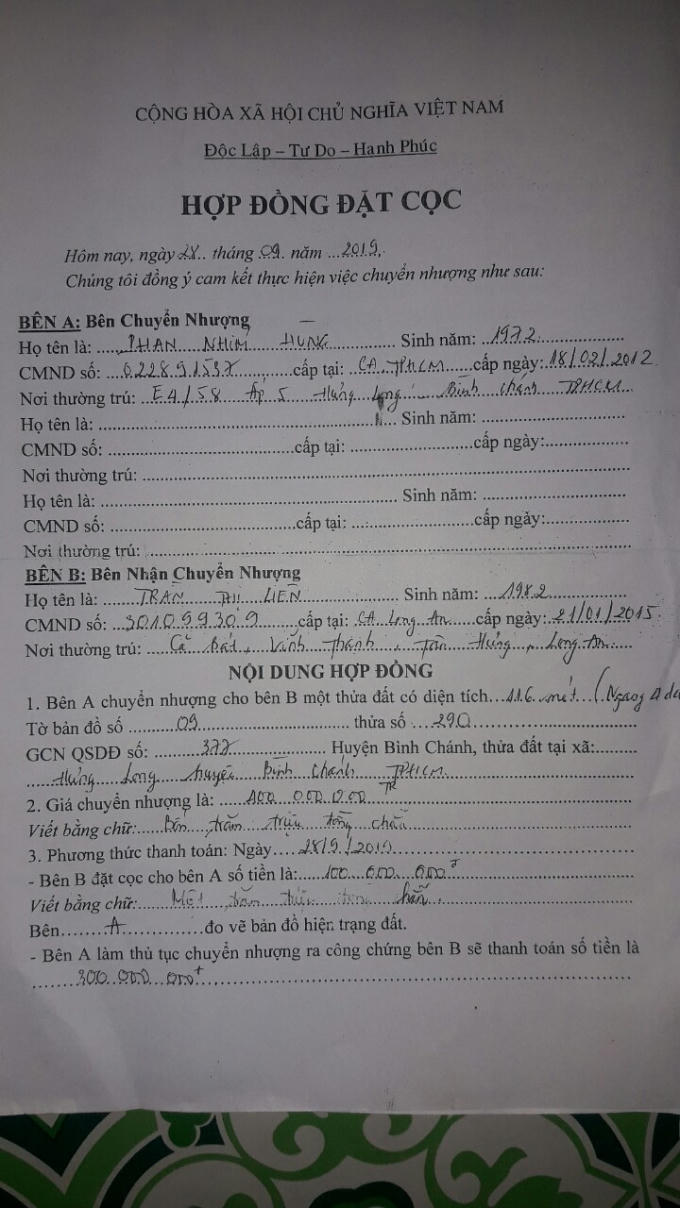 CỘNG HÒA XÃ HỘI CHỦ NGHĨA VIỆT NAM
Độc Lập – Tư Do – Hanh Phúc
HỢP ĐỒNG ĐẶT CỌC
Hôm nay, ngày 28.. tháng 09. năm ...2019.
Chúng tôi đồng ý cam kết thực hiện việc chuyển nhượng như sau:
BÊN A: Bên Chuyển Nhượng
Họ tên là: ....PHAN NHƯ HÙNG............ Sinh năm: ..1972....................
CMND số: ...022891537............cấp tại: CA TPHCM......cấp ngày:18/02/2012
Nơi thường trú: ..E4/58 Ấp 5 Hưng Long Bình Chánh TPHCM
Họ tên là: ........................................................... Sinh năm: ..............................
CMND số: ........................................cấp tại: ..........................cấp ngày:..................
Nơi thường trú: .....................................................................................................
Họ tên là: ........................................................... Sinh năm: ..............................
CMND số: ........................................cấp tại: ..........................cấp ngày:..................
Nơi thường trú: .....................................................................................................
BÊN B: Bên Nhận Chuyển Nhượng
Họ tên là: ......TRẦN THỊ LIÊN.................... Sinh năm: ...1982.................
CMND số: ...301099309........cấp tại: .CA Long An......cấp ngày:21/01/2015.
Nơi thường trú: .....Cả Bát, Vĩnh Thạnh, Tân Hưng, Long An.....
NỘI DUNG HỢP ĐỒNG
1. Bên A chuyển nhượng cho bên B một thửa đất có diện tích...116 mét (Ngang 4
Tờ bản đồ số ..........09.......................... thửa số ...290...........................
GCN QSDĐ số: ..............377................. Huyện Bình Chánh, thửa đất tại xã:.........
....Hưng Long huyện Bình Chánh TPHCM.......................................
2. Giá chuyển nhượng là: .....400.000.000........................................
Viết bằng chữ:.....Bốn trăm triệu đồng chẵn.................................
3. Phương thức thanh toán: Ngày.....28/9/2019................................
- Bên B đặt cọc cho bên A số tiền là:......100.000.000đ.......................
Viết bằng chữ:......Một trăm triệu đồng chẵn................................
Bên.......A................đo vẽ bản đồ hiện trạng đất.
- Bên A làm thủ tục chuyển nhượng ra công chứng bên B sẽ thanh toán số tiền là
.......300.000.000đ...............................................................................